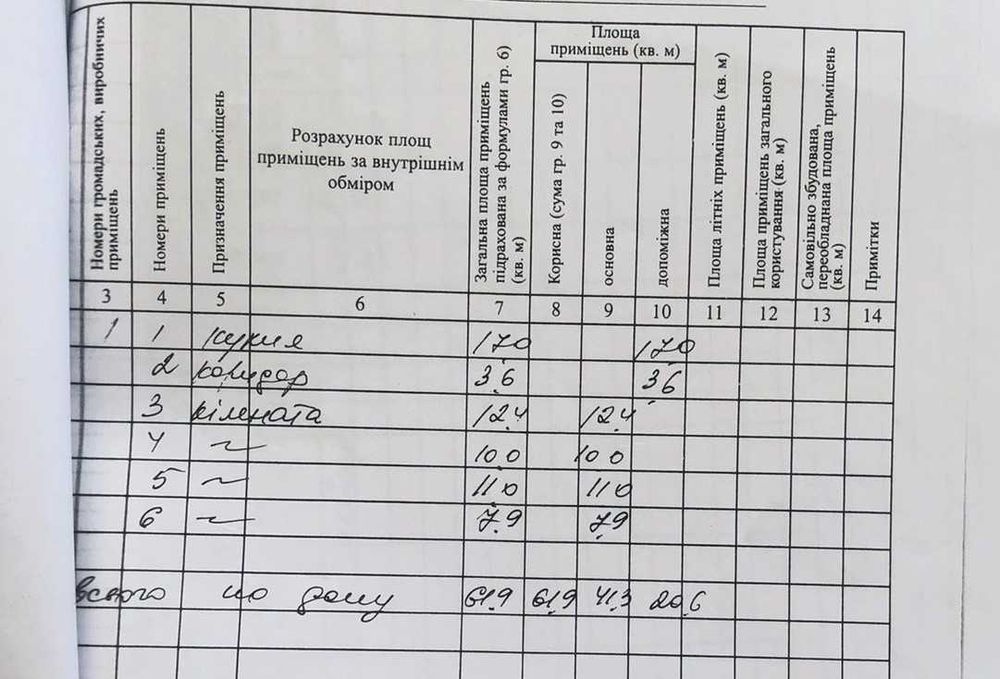 Номери громадських, виробничих приміщень
Номери приміщень
Призначення приміщень
Розрахунок площ
приміщень за внутрішнім
обміром
Загальна площа приміщень
підрахована за формулами гр. 6)
(кв. м)
Площа
приміщень (кв. м)
Корисна (сума гр. 9 та 10)
основна
допоміжна
Площа літніх приміщень (кв. м)
Площа приміщень загального
користування (кв. м)
Самовільно збудована,
переобладнана площа приміщень
(кв. м)
Примітки
3 4 5 6 7 8 9 10 11 12 13 14
1 1 кухня 17.0 17.0
2 коридор 3.6 3.6
3 кімната 12.4 12.4
4 ~ 10.0 10.0
5 ~ 11.0 11.0
6 ~ 7.9 7.9
всього по дому 61.9 61.9 41.3 20.6